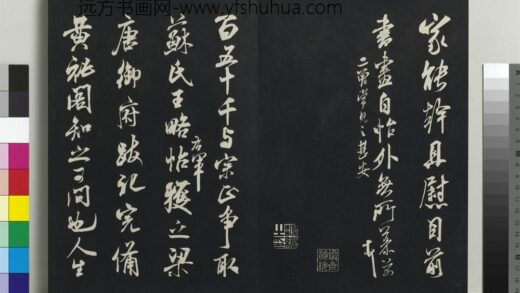 远方书画网-www.yfshuhua.com
家能幹且慰目前
書畫自怡外無所慕芾
二曹常見之甚安
百五十千与宗正争取
蘇氏王略帖獲之梁
右軍
唐御府跋記完備
黄秘閣知之可問也人生